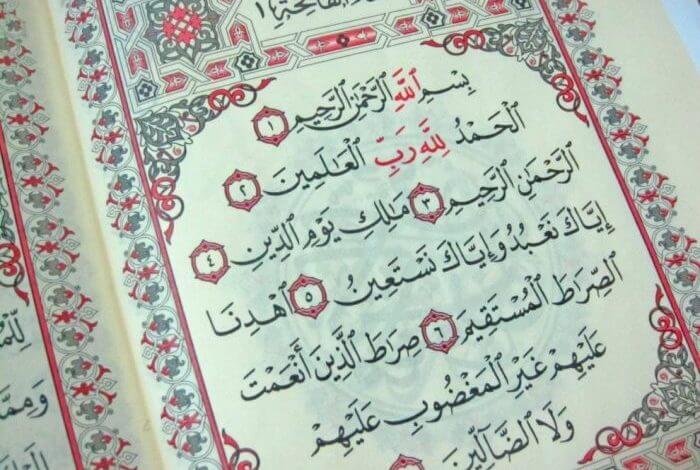 الفاتحة ١
بِسْمِ ٱللَّهِ ٱلرَّحْمَٰنِ ٱلرَّحِيمِ ١
ٱلْحَمْدُ لِلَّهِ رَبِّ ٱلْعَٰلَمِينَ ٢
ٱلرَّحْمَٰنِ ٱلرَّحِيمِ ٣ مَٰلِكِ يَوْمِ ٱلدِّينِ ٤
إِيَّاكَ نَعْبُدُ وَإِيَّاكَ نَسْتَعِينُ ٥ ٱهْدِنَا
ٱلصِّرَٰطَ ٱلْمُسْتَقِيمَ ٦ صِرَٰطَ ٱلَّذِينَ أَنْعَمْتَ
عَلَيْهِمْ غَيْرِ ٱلْمَغْضُوبِ عَلَيْهِمْ
وَلَا ٱلضَّآلِّينَ